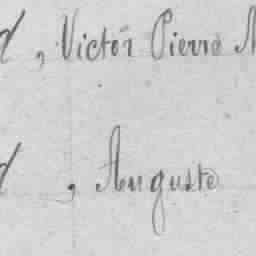 d, Victor Pierre
d, Auguste